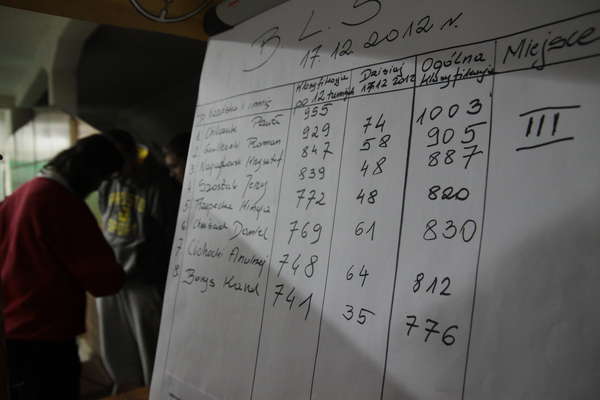 B L S
17.12.2012 r.
Klasyfikacja po 12 turniej. Dzisiaj 17.12 2012 Ogólna klasyfikacja Miejsce
Lp Nazwisko i imię
1 Paweł 955
2 Roman 929 74 1003 III
3 Krzysztof 847 58 905
4 Szostak Jerzy 839 48 887
5 772 48 820
6 Daniel 769 61 830
7 Cichocki Andrzej 748 64 812
8 Borys Karol 741 35 776